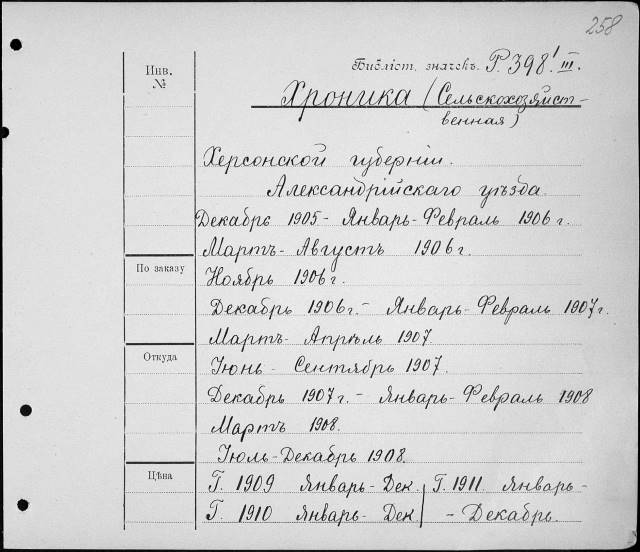 258
Библіот. значекъ. P.398'/III.
Инв.
№
Хроника (Сельскохозяйст-
венная)
Херсонской губерніи.
Александрійскаго уѣзда.
Декабрь 1905 - Январь-Февраль 1906 г.
Мартъ - Августъ 1906 г.
По заказу
Ноябрь 1906 г.
Декабрь 1906 г. - Январь-Февраль 1907 г.
Мартъ - Апрѣль 1907.
Откуда
Іюнь - Сентябрь 1907.
Декабрь 1907 г. - Январь-Февраль 1908
Мартъ 1908.
Іюль-Декабрь 1908.
Цѣна
Г. 1909 Январь-Дек. Г. 1911. Январь-
Г. 1910 Январь-Дек - Декабрь.